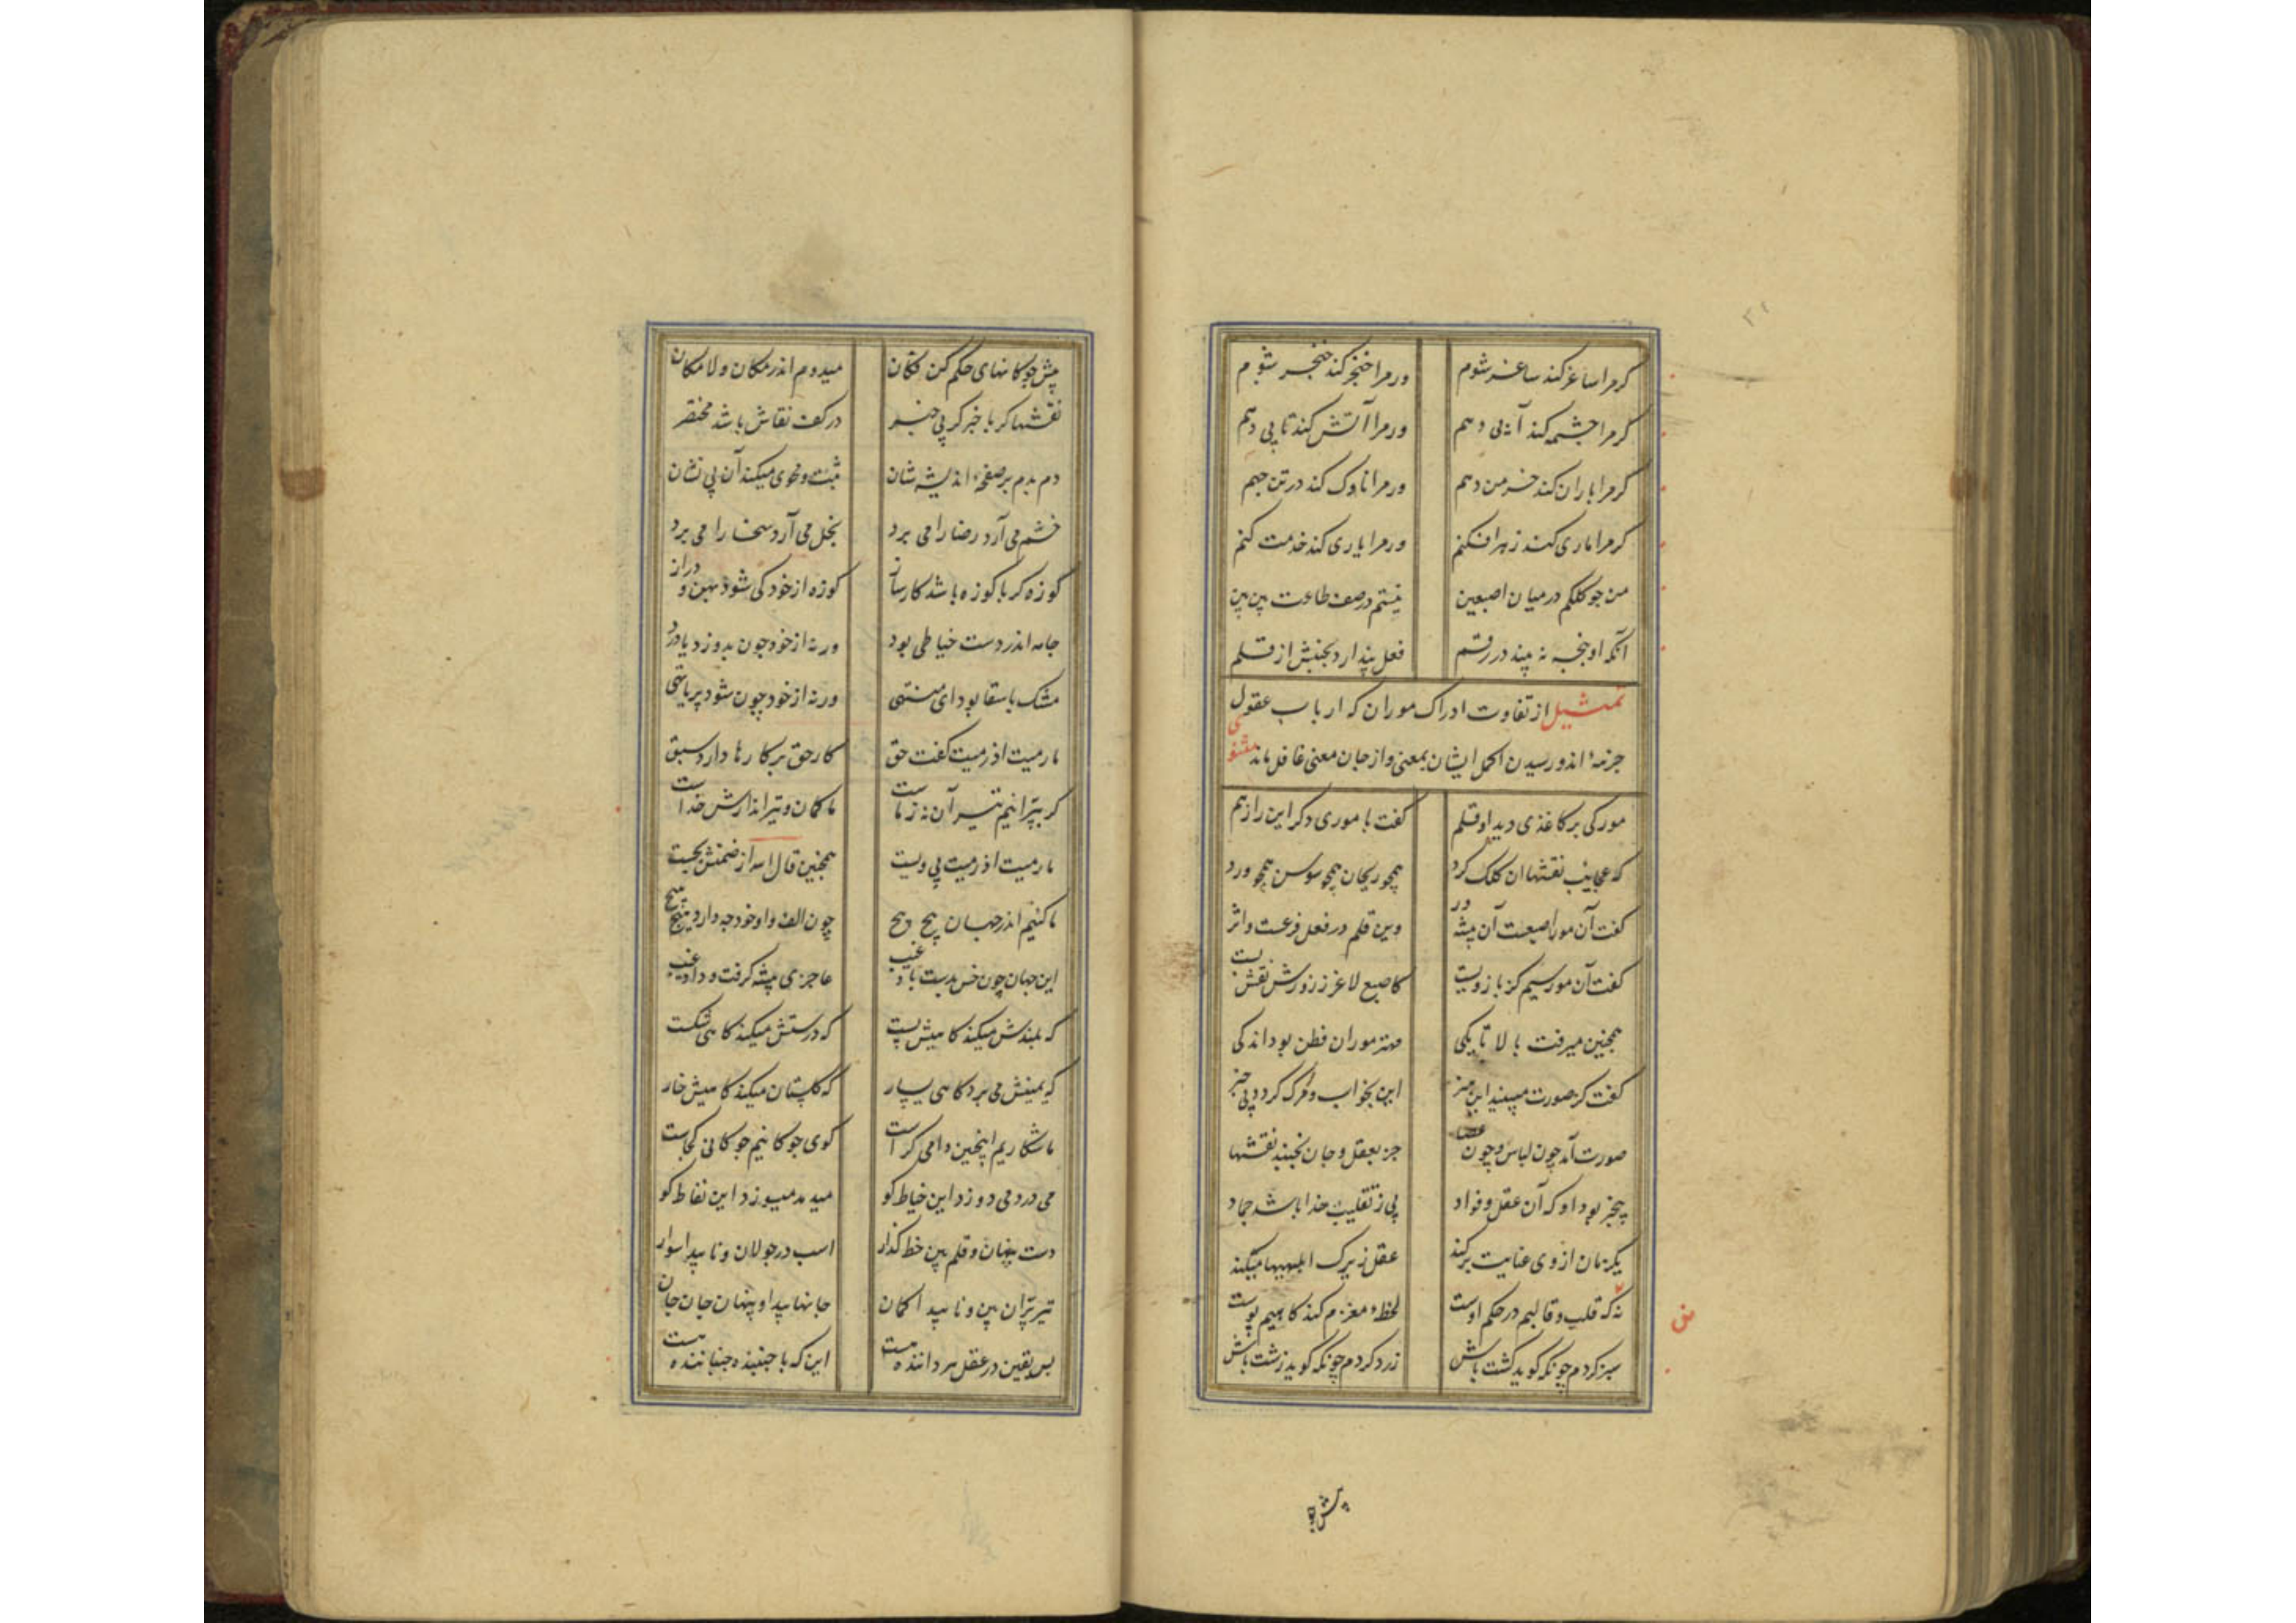 ۳۱
کرمرا ساغر کند ساغر شوم ورمرا خنجر کند خنجر شوم
کرمرا چشمه کند آبی دهم ورمرا آتش کند تابی دهم
کرمرا باران کند خرمن دهم ورمرا ناوک کند در تن جهم
کرمرا ماری کند زهر افکنم ورمرا یاری کند خدمت کنم
من جو کلکم درمیان اصبعین نیستم درصف طاعت بین بین
آنکه او پنجه نه بیند در رقم فعل پندارد بجنبش از قلم
تمثیل از تفاوت ادراک موران که ارباب عقول
جزنه اندو رسیدن اکمل ایشان بمعنی واز جان معنی غافل ماند مثنوی
مورکی برکاغذی دید او قلم کفت با موری دکر این راز هم
که عجایب نقشها ان کلک کرد همچو ریحان همچو سوسن همچو ورد
کفت آن مور اصبعست آن پیشه ور وین قلم در فعل فرعست و اثر
کفت آن مور سیم کز بازویست کاصبع لاغر ز زورش نقش بست
همچنین میرفت بالا تا یکی مهتر موران فطن بود اندکی
کفت کز صورت مبینید این هنر این بخواب و مرک کردد بی خبر
صورت آمد چون لباس و چون عصا جز بعقل و جان نجنبد نقشها
بیخبر بود او که آن عقل و فواد بی ز تقلیب خدا باشد جماد
یکزمان از وی عنایت برکند عقل زیرک ابلهیها میکند
نه که قلب و قالبم در حکم اوست لحظه مغزم کند کاهیم پوست
سبز کردم چونکه کوید کشت باش زرد کردم چونکه کوید زشت باش
پیش چو
پیش جوکانهای حکم کن فکان میدوم اندر مکان و لامکان
نقشها کر باخبر کر بی خبر درکف نقاش باشد مختصر
دم بدم برصفحه اندیشه شان ثبت و محوی میکند آن بی نشان
خشم می آرد رضا را می برد بخل می آرد سخا را می برد
کوزه کر با کوزه باشد کارساز کوزه از خود کی شود پهن و دراز
جامه اندر دست خیاطی بود ورنه از خود جون بدوزد یا درد
مشک با سقا بود ای منتهی ورنه از خود چون شود پر یا تهی
مارمیت اذ رمیت کفت حق کار حق برکارها دارد سبق
کر بپرانیم تیر آن نه ز ماست ما کمان و تیراندازش خداست
مارمیت اذ رمیت بی ویست همچنین قال الله از ضمنش بجست
ما کنیم اندر جهان پیچ پیچ چون الف او خود چه دارد هیچ هیچ
این جهان چون خس بدست باد غیب عاجزی پیشه کرفت و داد غیب
که بلندش میکند کاهیش پست که درستش میکند کاهی شکست
که یمینش می برد کاهی یسار که کلستان میکند کاهیش خار
ما شکاریم اینچنین دامی کراست کوی جوکانیم جوکانی کجاست
می درد می دوزد این خیاط کو میدمد میسوزد این نفاط کو
دست پنهان و قلم بین خط کذار اسب در جولان و ناپیدا سوار
تیر پران بین و ناپیدا کمان جانها پیدا و پنهان جان جان
بس یقین در عقل هر داننده هست این که با جنبنده جنباننده هست